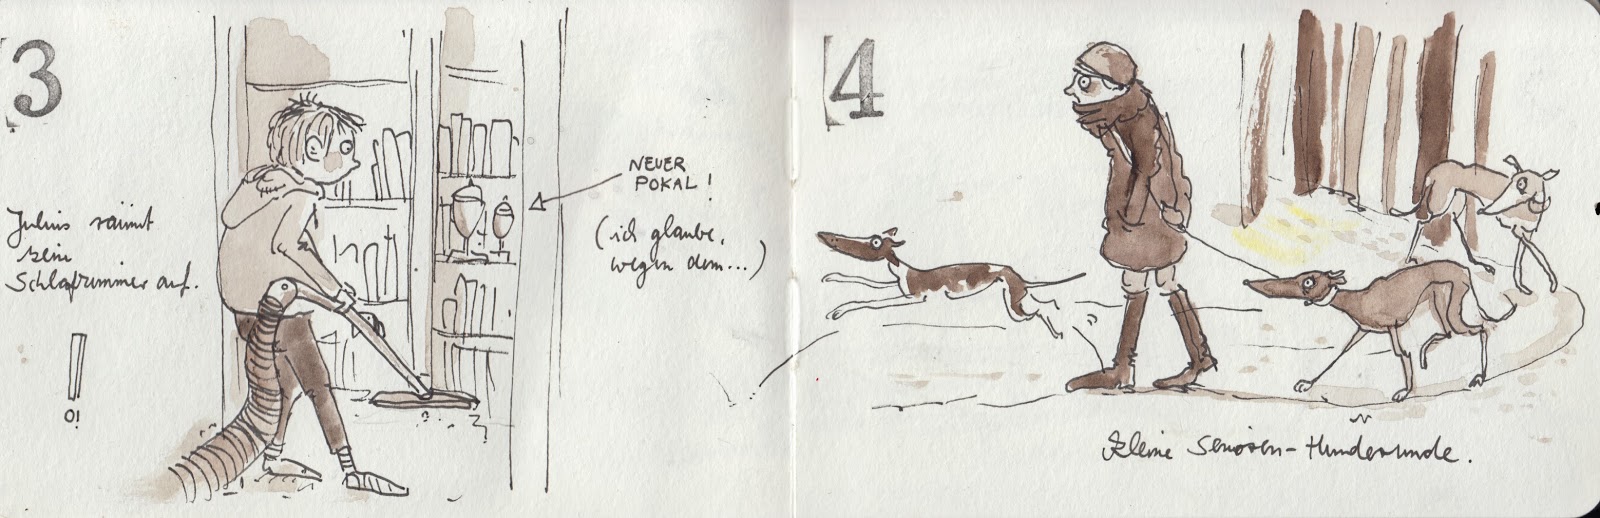 3
Julius räumt
sein
Schlafzimmer auf.
!
O!
NEUER
POKAL!
(ich glaube,
wegen dem...)
4
Kleine Senioren-Hunderunde.